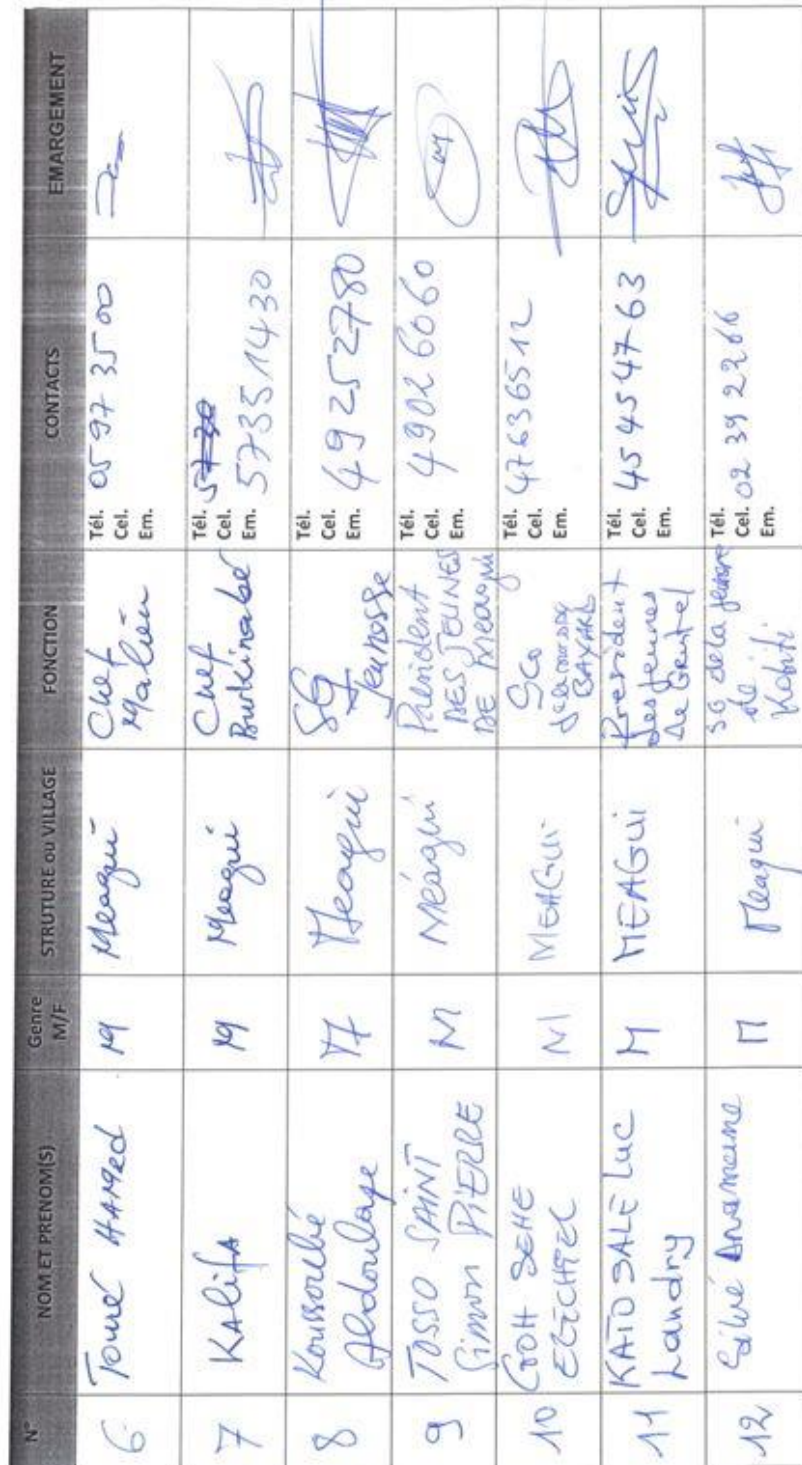 N° NOM ET PRENOM(S) Genre M/F STRUTURE ou VILLAGE FONCTION CONTACTS EMARGEMENT
6 Touré HAMED M Meagui Chef Malien Tél. 05 97 35 00 Cel. Em.
7 KALifA M Meagui Chef Burkinabé Tél. Cel. Em. 57351430
8 Koussoubé Abdoulaye M Meagui SG Jeunesse Tél. Cel. Em. 49252780
9 TOSSO SAINT Simon PiERRE M Méagui Président DES JEUNES DE Meagui Tél. Cel. Em. 49026060
10 GOH SEHE EZECHIEL M MEAGui BAYARD Tél. 47636512 Cel. Em.
11 KATO SALE Luc Landry M MEAGui President des jeunes de Tél. 45 45 47 63 Cel. Em.
12 M Meagui SG de la de Tél. Cel. 02 39 2266 Em.